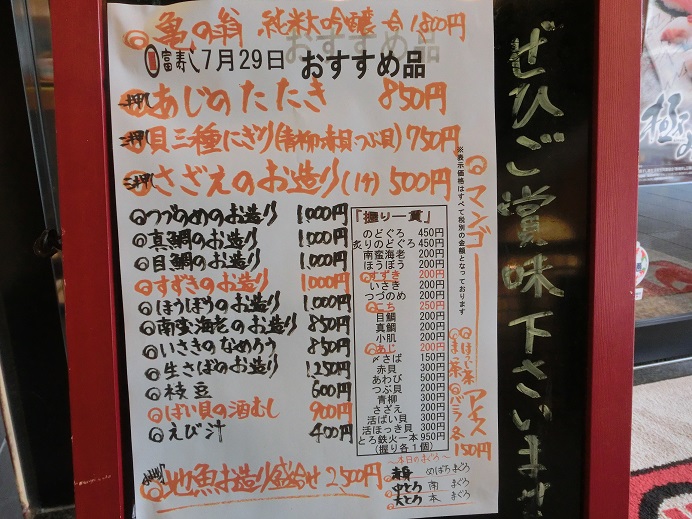 ◎亀の翁 純米大吟醸 合1800円
富寿し 7月29日 おすすめ品
一押し あじのたたき 850円
二押し 貝三種にぎり(青柳・赤貝・つぶ貝) 750円
三押し さざえのお造り(1ケ) 500円
◎つづのめのお造り 1,000円
◎真鯛のお造り 1,000円
◎目鯛のお造り 1,000円
◎すずきのお造り 1,000円
◎ほうぼうのお造り 1,000円
◎南蛮海老のお造り 850円
◎いさきのなめろう 850円
◎生さばのお造り 1,250円
◎枝豆 600円
◎ばい貝の酒むし 900円
◎えび汁 400円
◎地魚お造り盛合せ 2,500円
「握り一貫」
のどぐろ 450円
炙りのどぐろ 450円
南蛮海老 200円
ほうぼう 200円
◎すずき 200円
いさき 200円
つづのめ 200円
◎こち 250円
目鯛 200円
真鯛 200円
小肌 200円
◎あじ 200円
〆さば 150円
赤貝 300円
あわび 500円
つぶ貝 200円
青柳 300円
さざえ 200円
活ばい貝 300円
活ほっき貝 300円
とろ鉄火一本 950円
(握り各1個)
〜本日のまぐろ〜
赤身 めばちまぐろ
中とろ 南まぐろ
大とろ 本まぐろ
※表示価格はすべて税別の金額となっております
◎マンゴー
◎ほうじ茶
◎まっ茶
◎バニラ
アイス
各150円
ぜひご賞味下さいませ